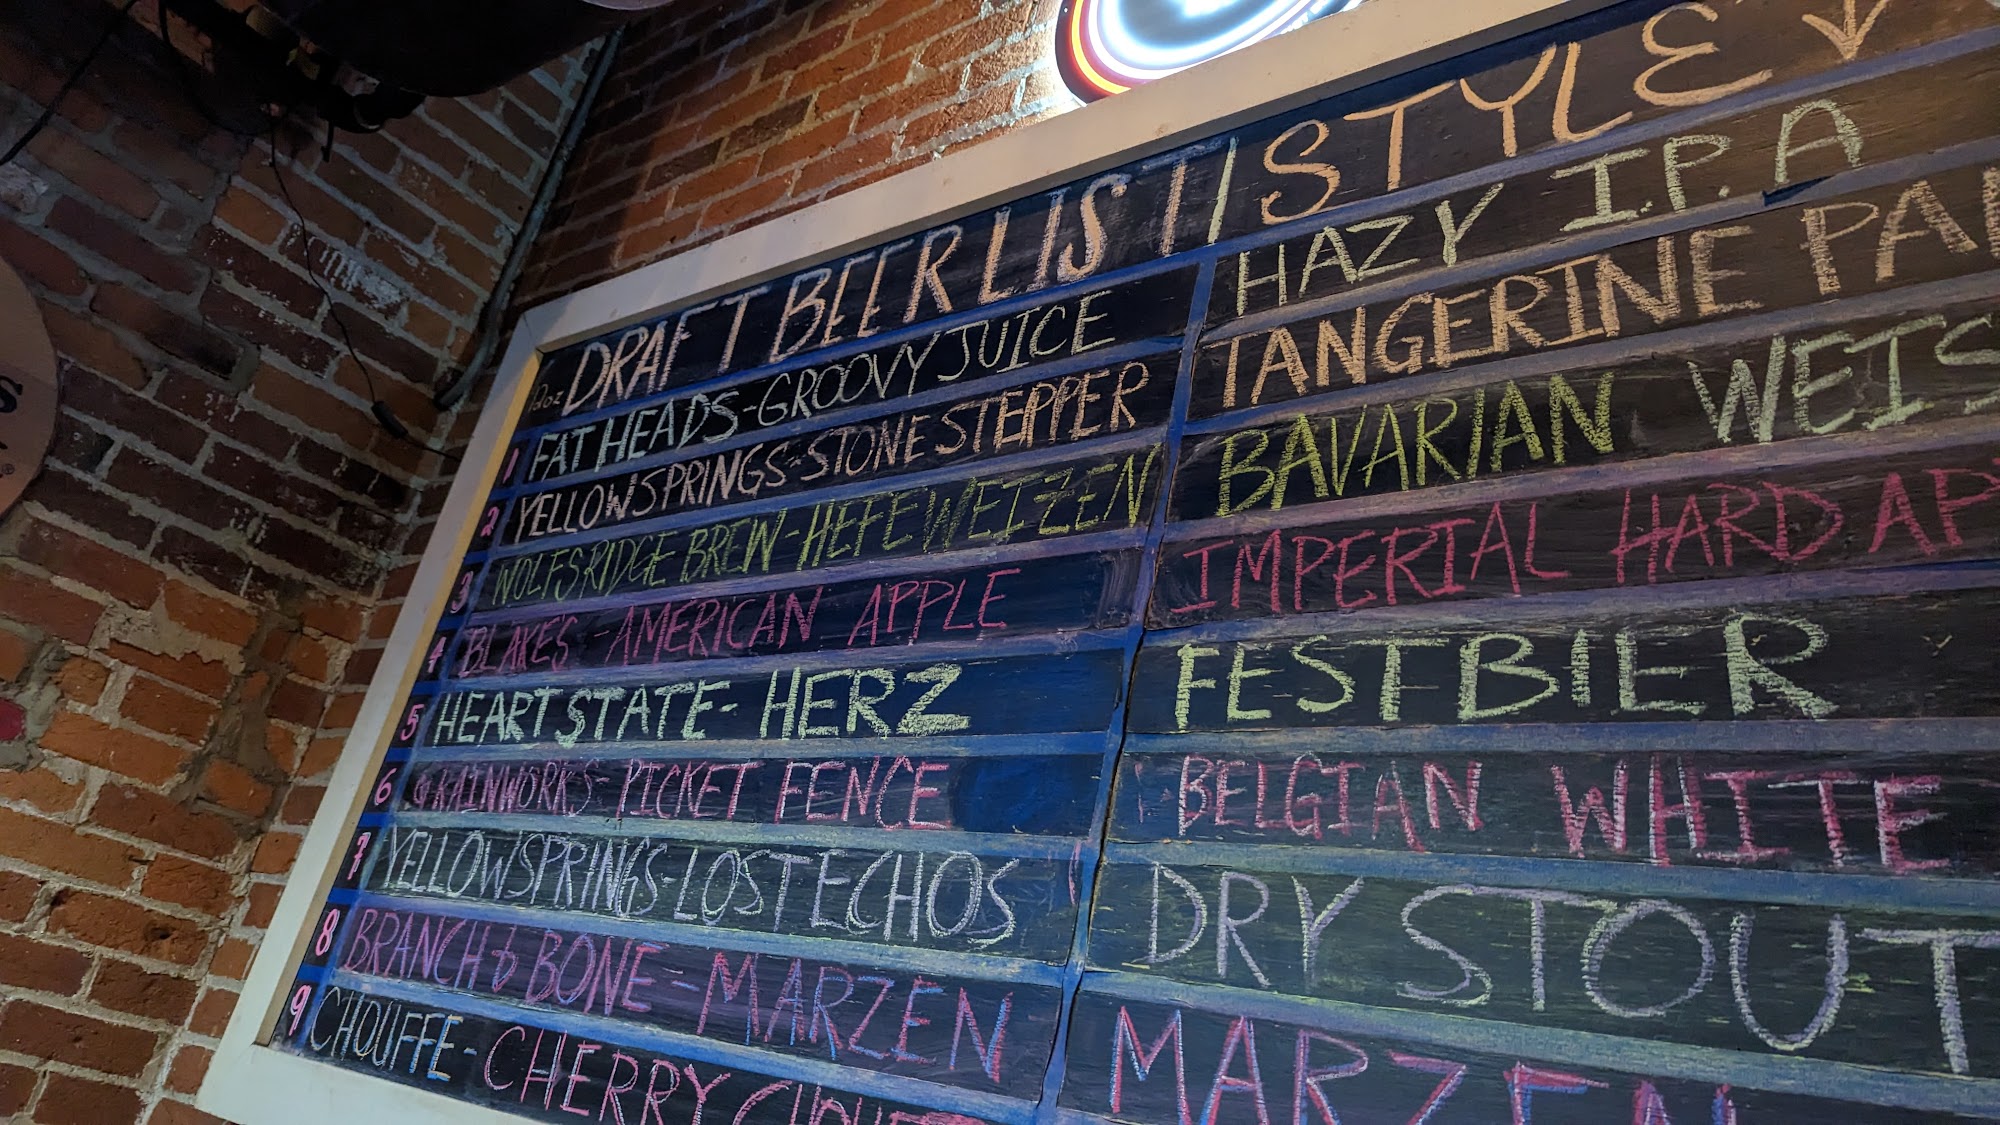 12oz DRAFT BEER LIST | STYLE ↓
1 FAT HEADS - GROOVY JUICE HAZY I.P.A
2 YELLOW SPRINGS - STONE STEPPER TANGERINE
3 WOLFS RIDGE BREW - HEFEWEIZEN BAVARIAN
4 BLAKE'S - AMERICAN APPLE IMPERIAL HARD
5 HEART STATE - HERZ FESTBIER
6 GRAINWORKS - PICKET FENCE BELGIAN WHITE
7 YELLOW SPRINGS - LOST ECHOS DRY STOUT
8 BRANCH & BONE - MARZEN MARZEN
9 CHOUFFE - CHERRY